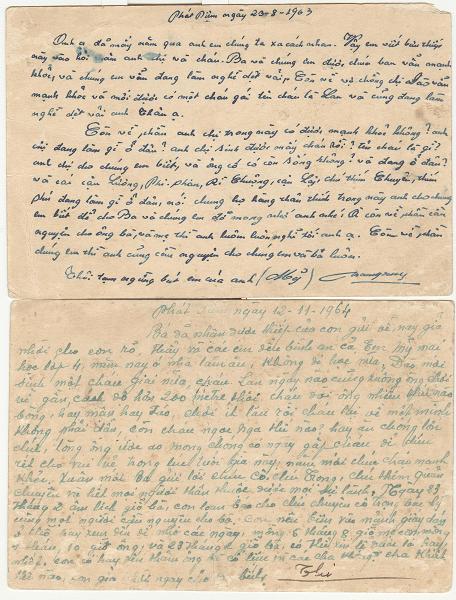 Phát Diệm ngày 20-8-1963
Anh ạ đã mấy năm qua anh em chúng ta xa cách nhau. Vậy em viết bưu thiếp
này vào hỏi thăm anh chị và cháu. Ba và chúng em được chúa ban vẫn mạnh
khỏe, và chúng em vẫn đang làm nghề dệt vải, Còn về vợ chồng chị Đào vẫn
mạnh khỏe và mới được có một cháu gái tên cháu là Lan và cũng đang làm
nghề dệt vải anh Thân ạ.
Còn về phần anh chị trong này có được mạnh khỏe không? anh
chị đang làm gì ở đâu? anh chị sinh được mấy cháu rồi? tên cháu là gì?
anh chị cho chúng em biết, và ông cố có còn sống không? và đang ở đâu?
và cai cậu Luông, Phi, phán, Kí Thường, cậu Lợi chú thím Thuyên, thím
phú đang làm gì ở đâu, nói chung họ hàng thân thích trong này anh cho chúng
em biết để cho Ba và chúng em đỡ mong nhé anh nhé! À còn về phần cầu
nguyện cho ông bà, và mẹ thì anh luôn luôn nghĩ tới anh ạ. Còn về phần
chúng em thì anh cũng cầu nguyện cho chúng em và ba luôn.
Thôi tạm ngừng bút em của anh (Mỹ)
Phát Diệm ngày 12-11-1964
Ba đã nhận được thiếp của con gửi về, nay gia
nhời cho con rõ, Thầy và các em đều bình an cả Em Mỹ mới
học lớp 4, năm nay ở nhà làm ăn, không đi học nữa, Đào mới
sinh một cháu giai nữa, cháu Lan ngày nào cũng xuống ông chơi
về gần, cách độ hơn 200 mètre thôi, cháu với ông nhiều khi nào
bồng, hay máy hay đẹo, chơi ít lâu rồi cháu thì về một mình
không phải dắt, còn cháu Nga thế nào? hay ăn chóng lớn
chứ, lòng ông ước ao mong chóng có ngày gặp cháu đi dìu
rét cho vui vẻ trong lúc tuổi già này, năm mới chúc cháu mạnh
khỏe. Xuân mới Ba gửi lời chúc cô, chú Trong, chú thím quản
Chuyên và hết mọi người thân thuộc được mọi sự lành, Ngày 23
tháng 2 âm lịch giỗ bà, con loan báo cho chú Chuyên cô trọn, bác lý
cùng mọi người cầu nguyện cho bà. Con nên biên vào mảnh giấy dán
ở chỗ hay xem đến để nhớ các ngày, mồng 5 tháng 8 giỗ mẹ con, mồng
4 tháng 10 giỗ ông, và 23 tháng 2 giỗ bà, có thể xin lễ nữa là hay
nhất, con có hay đến thăm ông bà cố
thế nào, con gửi biết. Thi